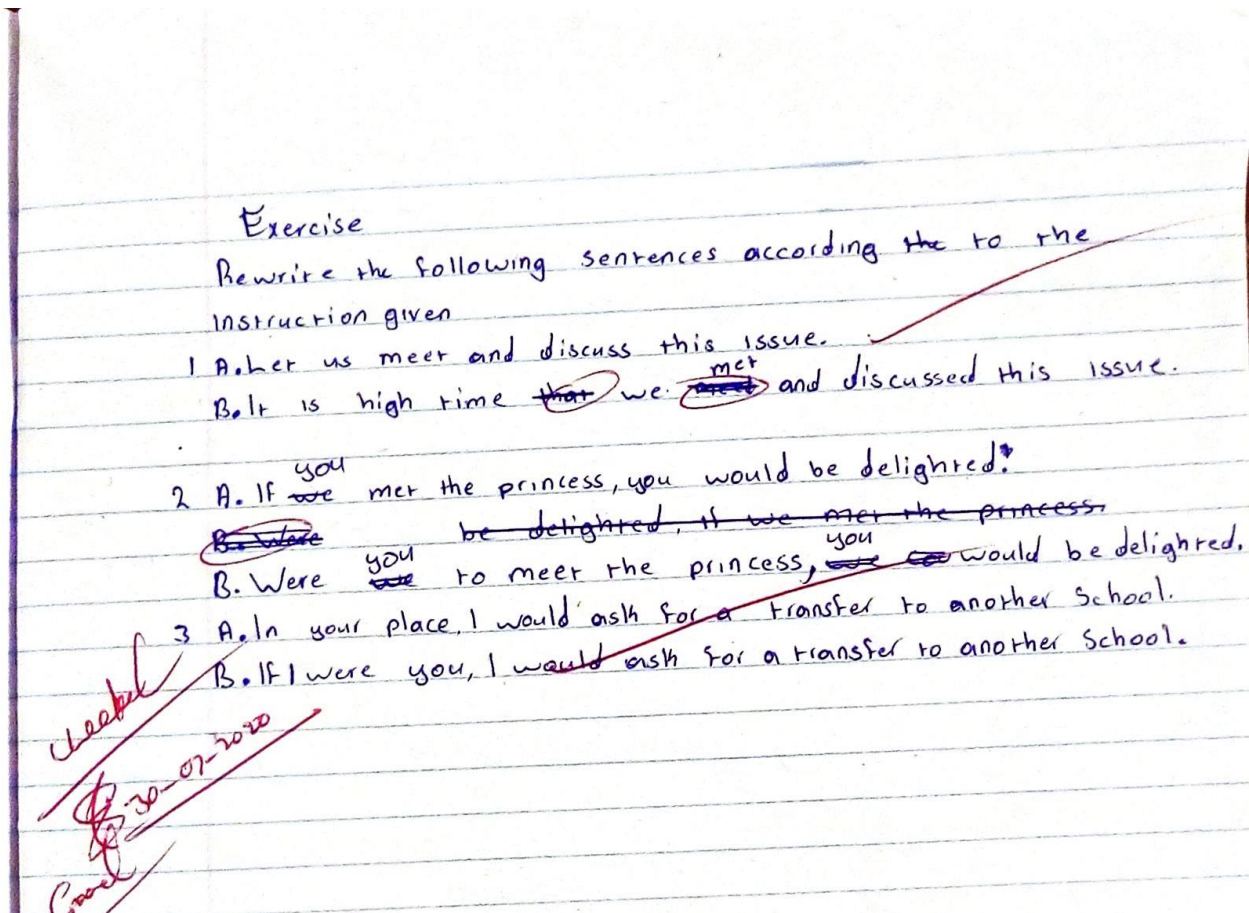 Exercise
Rewrite the following sentences according the to the
Instruction given
1 A. Let us meet and discuss this issue.
met
B. It is high time that we meet and discussed this issue.
you
2 A. If we met the princess, you would be delighted.
B. Were be delighted, if we met the princess.
you you
B. Were we to meet the princess, we would be delighted.
3 A. In your place, I would ask for a transfer to another School.
B. If I were you, I would ask for a transfer to another School.
checked
30-07-2020
Good